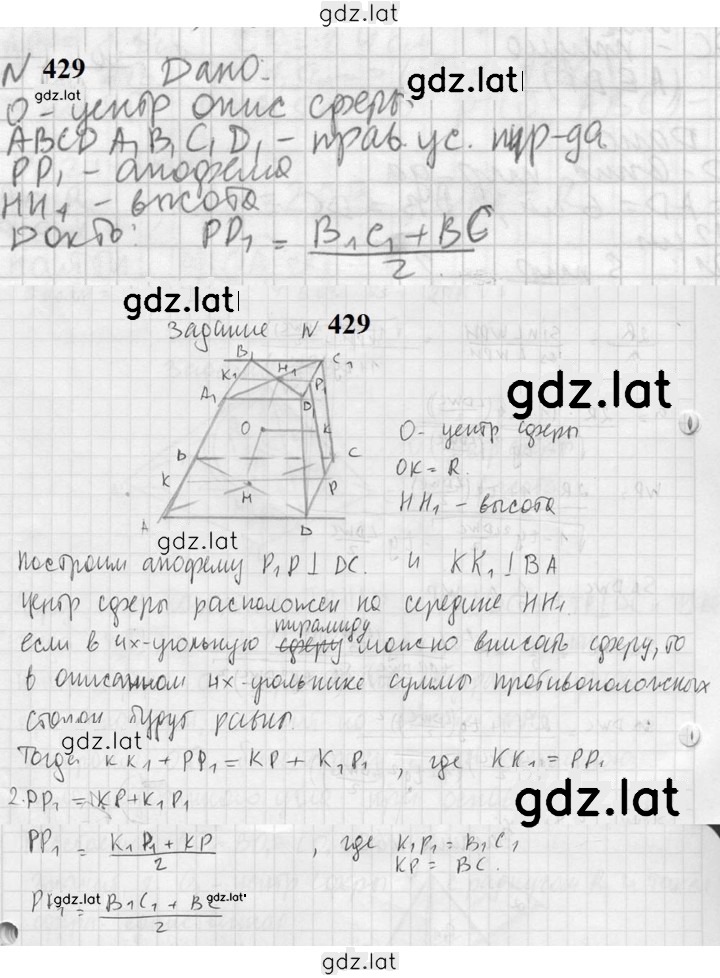 gdz.lat
N 429 Дано:
gdz.lat
О - центр опис сферы.
ABCD A₁ B₁ C₁ D₁ - прав. ус. пир-да
PP₁ - апофема
HH₁ - высота
Док-ть: PP₁ = (B₁C₁ + BC)/2
gdz.lat
Задание N 429
B₁ C₁
K₁ H₁ P₁
A₁ D₁
gdz.lat
O K
B C
K H P
A D
О - центр сферы
OK = R.
HH₁ - высота
gdz.lat
Построим апофему P₁P ⊥ DC. и KK₁ ⊥ BA
центр сферы расположен на середине HH₁.
пирамиду
если в 4х-угольную сферу можно вписать сферу, то
в описанном 4х-угольнике суммы противоположных
сторон будут равны.
gdz.lat
Тогда KK₁ + PP₁ = KP + K₁P₁, где KK₁ = PP₁
2.PP₁ = KP + K₁P₁
gdz.lat
PP₁ = (K₁P₁ + KP)/2, где K₁P₁ = B₁C₁
KP = BC.
gdz.lat gdz.lat
PP₁ = (B₁C₁ + BC)/2
gdz.lat